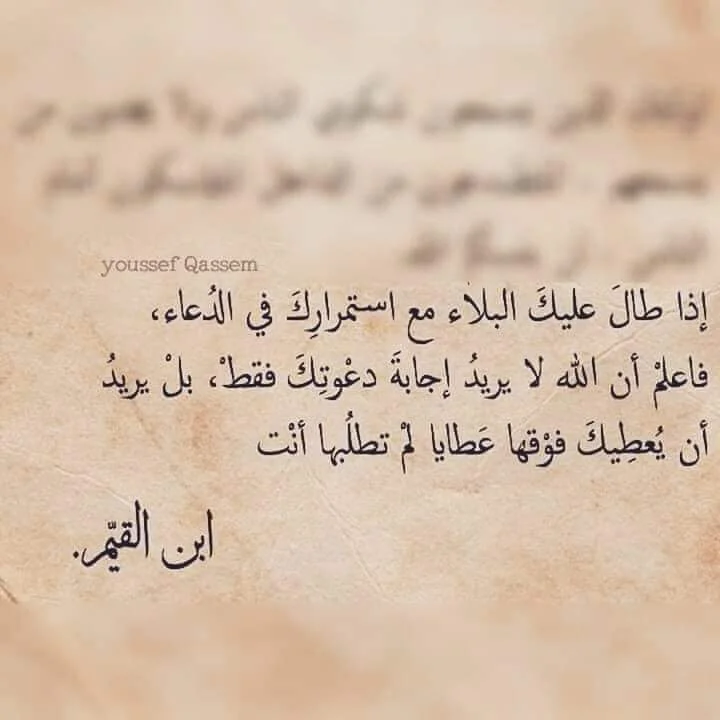 youssef Qassem
إذا طالَ عليكَ البلاء مع استمرارِكَ في الدُعاء،
فاعلمْ أن الله لا يريدُ إجابةَ دعْوتِكَ فقطْ، بلْ يريدُ
أن يُعطِيكَ فوْقها عَطايا لمْ تطلُبها أنْت
ابن القيّم.